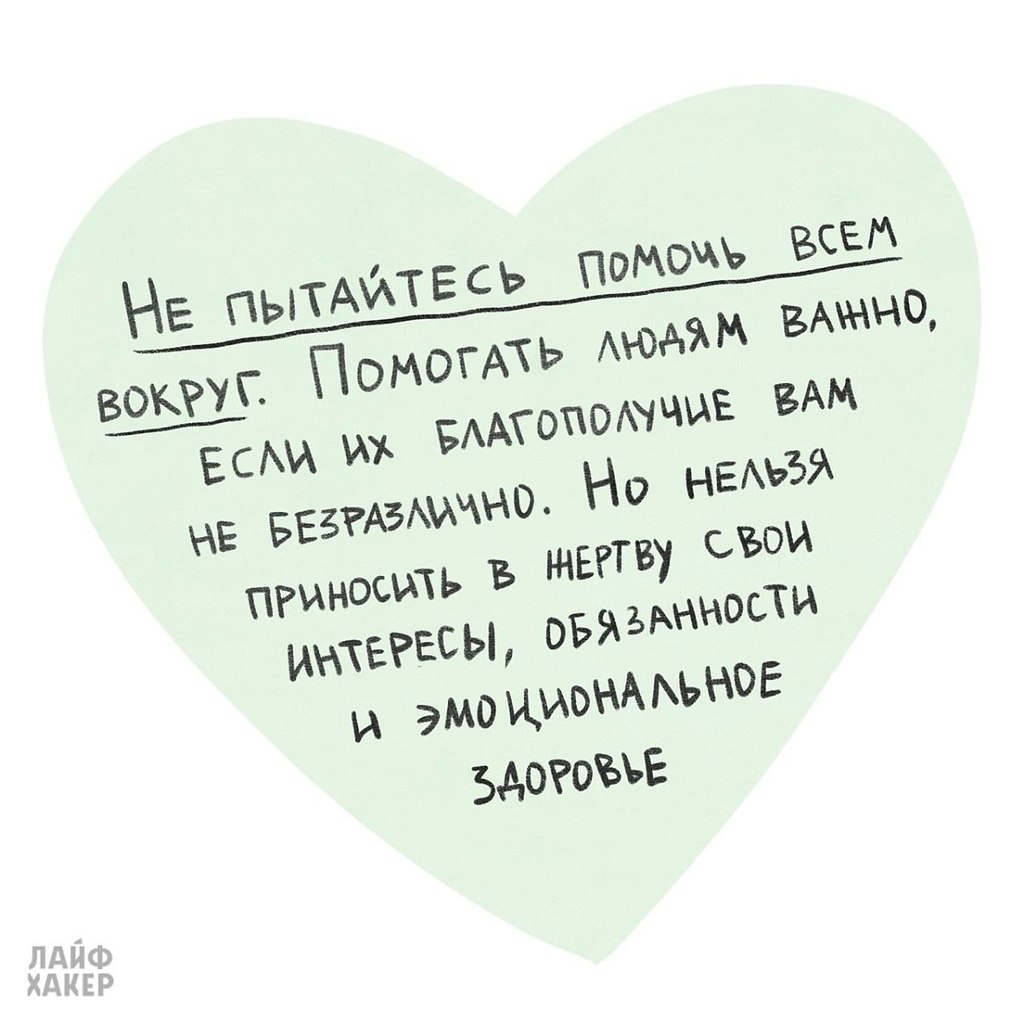 Не пытайтесь помочь всем
вокруг. Помогать людям важно,
если их благополучие вам
не безразлично. Но нельзя
приносить в жертву свои
интересы, обязанности
и эмоциональное
здоровье
ЛАЙФ
ХАКЕР